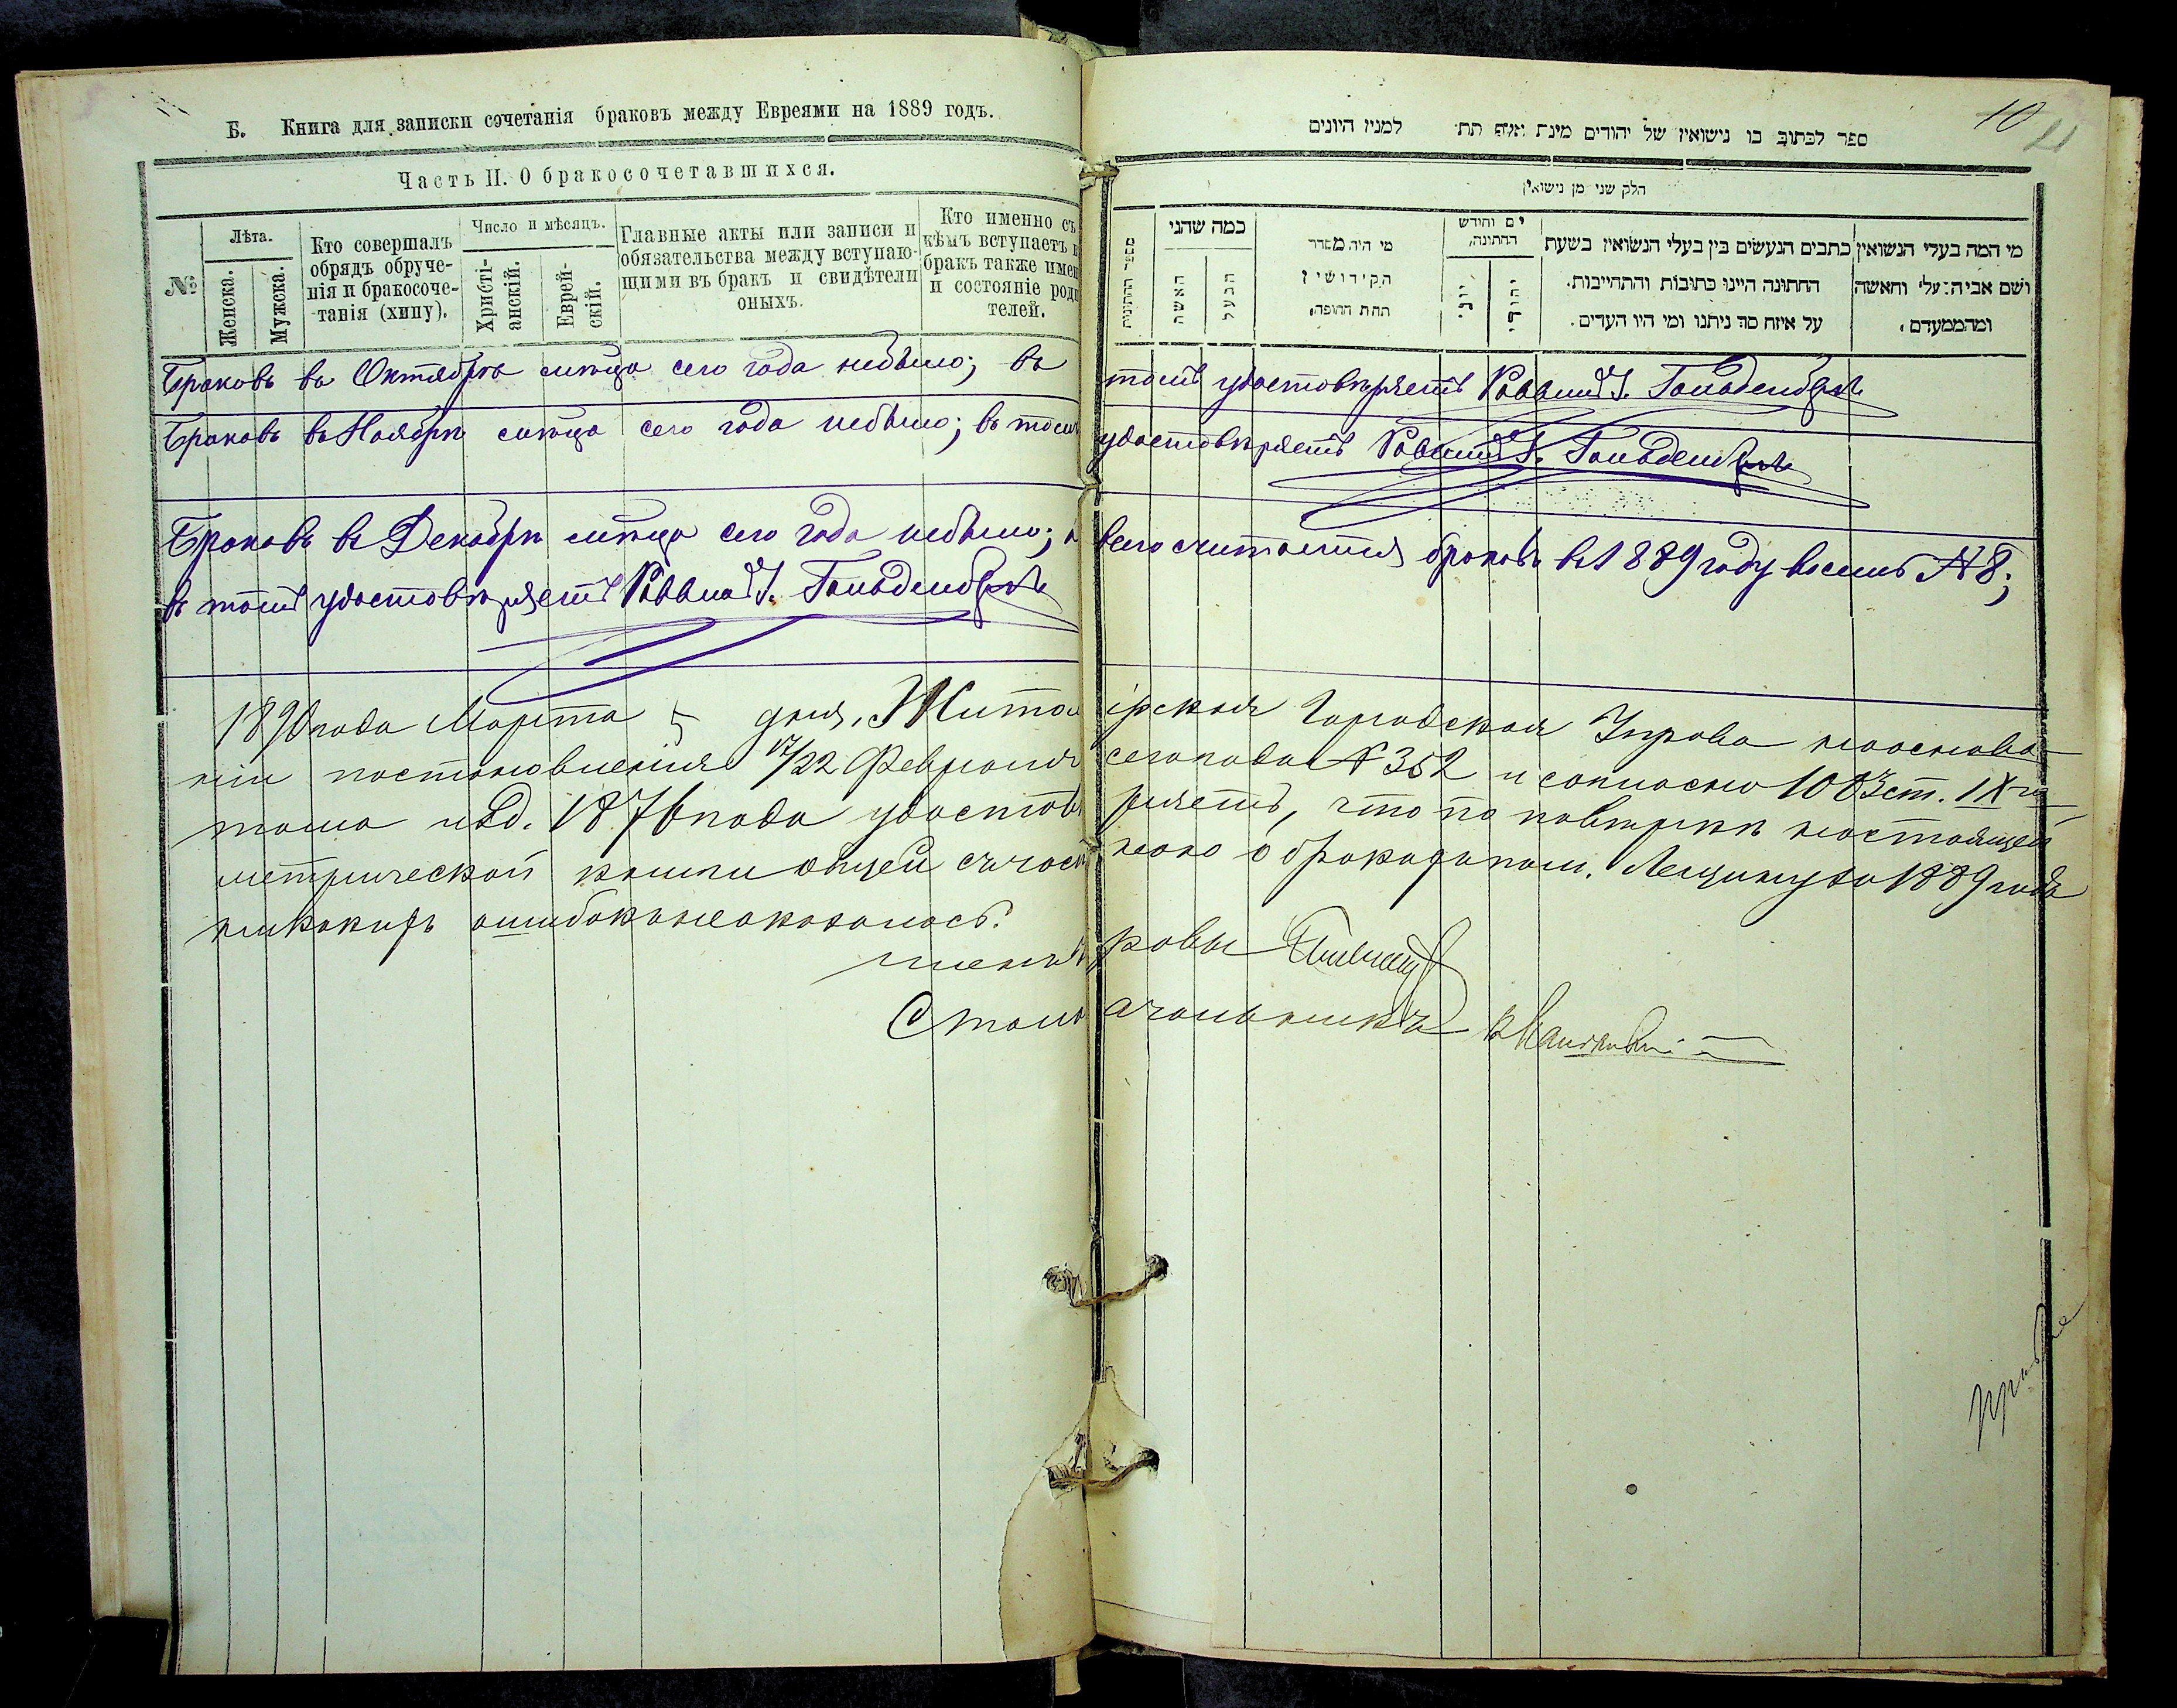 Б. Книга для записки сочетанія браковъ между Евреями на 1889 годъ.
Часть II. О бракосочетавшихся.
№
Лѣта.
Женска.
Мужска.
Кто совершалъ
обрядъ обруче-
нія и бракосоче-
танія (хипу).
Число и мѣсяцъ.
Христі-
анскій.
Еврей-
скій.
Главные акты или записи и
обязательства между вступаю-
щими въ бракъ и свидѣтели
оныхъ.
Кто именно съ
кѣмъ вступаетъ в
бракъ также имен
и состояніе роди
телей.
10
ספר לכתוב בו נישואין של יהודים מינת אלף תת למנין היונים
חלק שני מן נישואין
מספר החתונות
כמה שהני
האשה
הבעל
מי היה מסדר
הקידושין
תחת החופה
יום וחודש
החתונה
יוני
יהודי
כתבים הנעשים בין בעלי הנשואין בשעת
החתונה היינו כתובות והתחייבות.
על איזה סך ניתנו ומי היו העדים.
מי המה בעלי הנשואין
ושם אביה בעלי והאשה
ומהממעדם
Браковъ въ Октябрѣ мѣсяцѣ сего года небыло; въ томъ удостовѣряетъ Раввинъ І. Гольденбергъ
Браковъ въ Ноябрѣ мѣсяцѣ сего года небыло; въ томъ удостовѣряетъ Раввинъ І. Гольденбергъ
Браковъ въ Декабрѣ мѣсяцѣ сего года небыло; а всего считается браковъ въ 1889 году восемь № 8;
въ томъ удостовѣряетъ Раввинъ І. Гольденбергъ
1890 года Марта 5 дня, Житомірская Городская Управа на основа-
ніи постановленія 17/22 Февраля сего года № 352 и согласно 1083 ст. IX
тома изд. 1876 года удостовѣряетъ, что по повѣркѣ настоящей
метрической книги общей съ часѣ
1889 года
никакихъ ошибокъ не оказалось.
Членъ Управы
Столоначальникъ